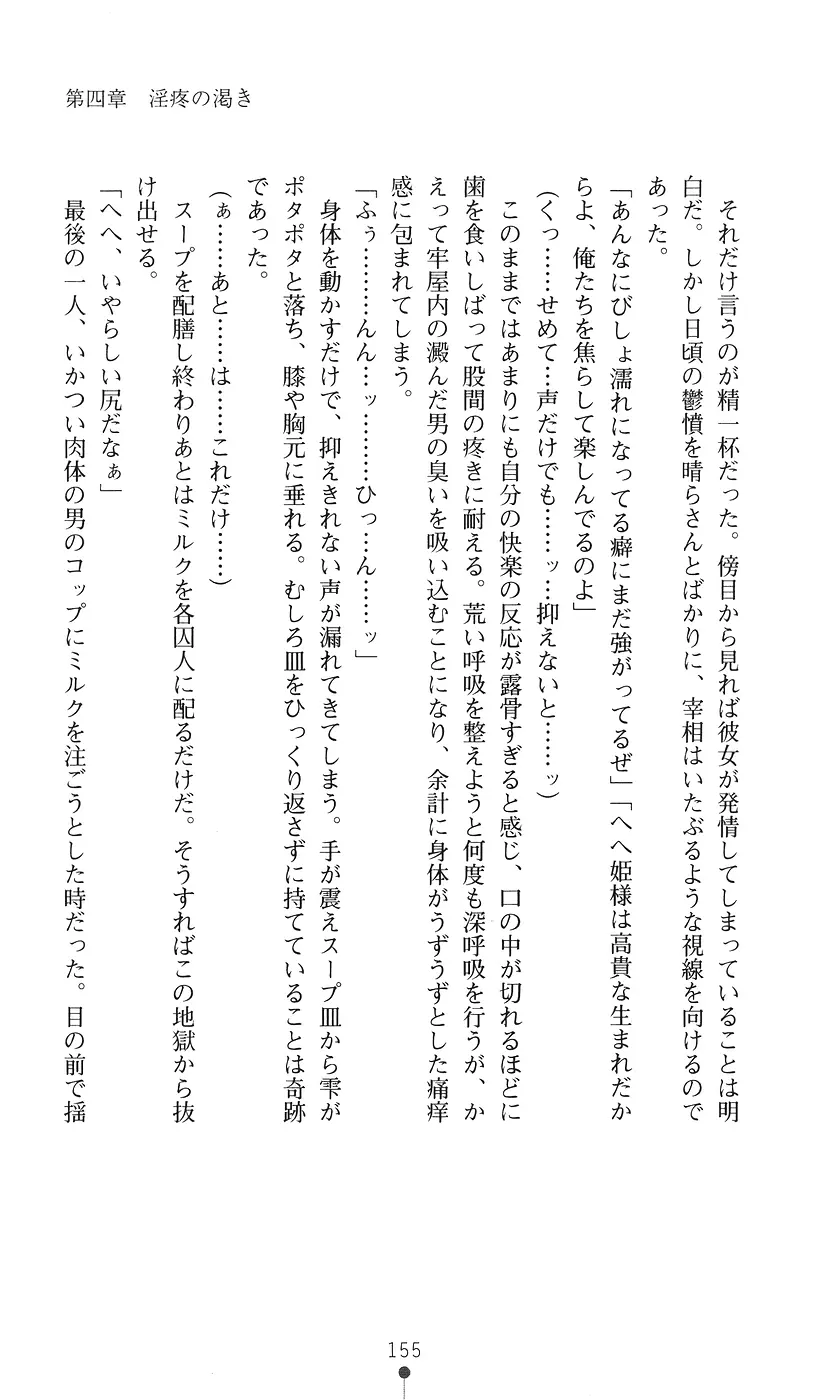 第四章　淫疼の渇き
それだけ言うのが精一杯だった。傍目から見れば彼女が発情してしまっていることは明
白だ。しかし日頃の鬱憤を晴らさんとばかりに、宰相はいたぶるような視線を向けるので
あった。
「あんなにびしょ濡れになってる癖にまだ強がってるぜ」「へへ姫様は高貴な生まれだか
らよ、俺たちを焦らして楽しんでるのよ」
（くっ……せめて…声だけでも……ッ…抑えないと……ッ）
このままではあまりにも自分の快楽の反応が露骨すぎると感じ、口の中が切れるほどに
歯を食いしばって股間の疼きに耐える。荒い呼吸を整えようと何度も深呼吸を行うが、か
えって牢屋内の澱んだ男の臭いを吸い込むことになり、余計に身体がうずうずとした痛痒
感に包まれてしまう。
「ふぅ………んん…ッ………ひっ…ん……ッ」
身体を動かすだけで、抑えきれない声が漏れてきてしまう。手が震えスープ皿から雫が
ポタポタと落ち、膝や胸元に垂れる。むしろ皿をひっくり返さずに持てていることは奇跡
であった。
（ぁ……あと……は……これだけ……）
スープを配膳し終わりあとはミルクを各囚人に配るだけだ。そうすればこの地獄から抜
け出せる。
「へへ、いやらしい尻だなぁ」
最後の一人、いかつい肉体の男のコップにミルクを注ごうとした時だった。目の前で揺
155